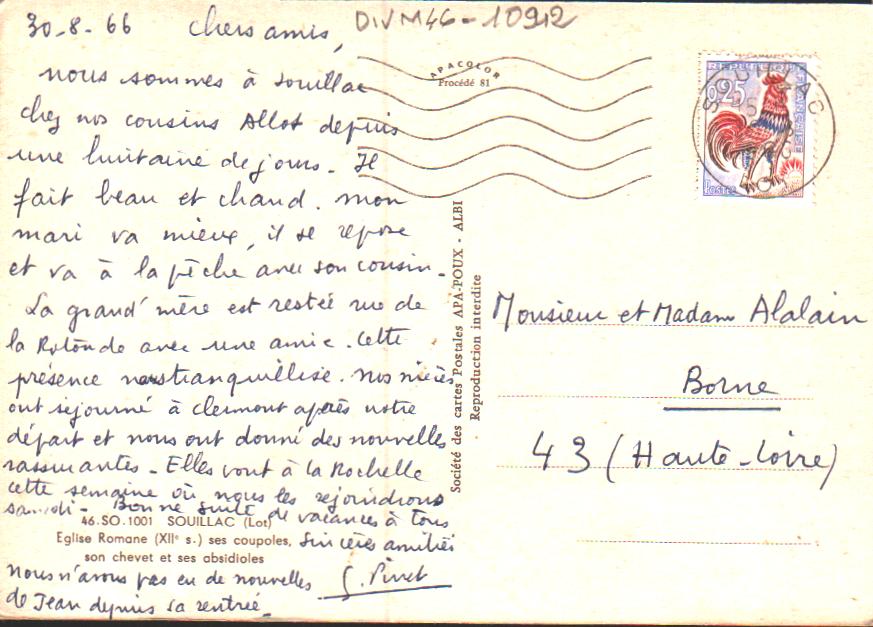 DIVM46-10912
30-8-66 Chers amis,
nous sommes à Souillac
chez nos cousins Allot depuis
une huitaine de jours. Il
fait beau et chaud. mon
mari va mieux, il se repose
et va à la pêche avec son cousin.
La grand' mère est restée rue de
la Rotonde avec une amie. Cette
présence nous tranquillise. Nos nièces
ont séjourné à Clermont après notre
départ et nous ont donné des nouvelles
rassurantes - Elles vont à la Rochelle
cette semaine où nous les rejoindrons
samedi - Bonne suite de vacances à tous
Sincères amitiés
nous n'avons pas eu de nouvelles
de Jean depuis sa rentrée.
46.SO.1001 SOUILLAC (Lot)
Eglise Romane (XIIe s.) ses coupoles,
son chevet et ses absidioles
APACOLOR
Procédé 81
Société des cartes Postales APA-POUX - ALBI
Reproduction interdite
REPUBLIQUE FRANÇAISE
0,25
Postes
SOUILLAC
LOT
Monsieur et Madame Alalain
Borne
43 (Haute-Loire)